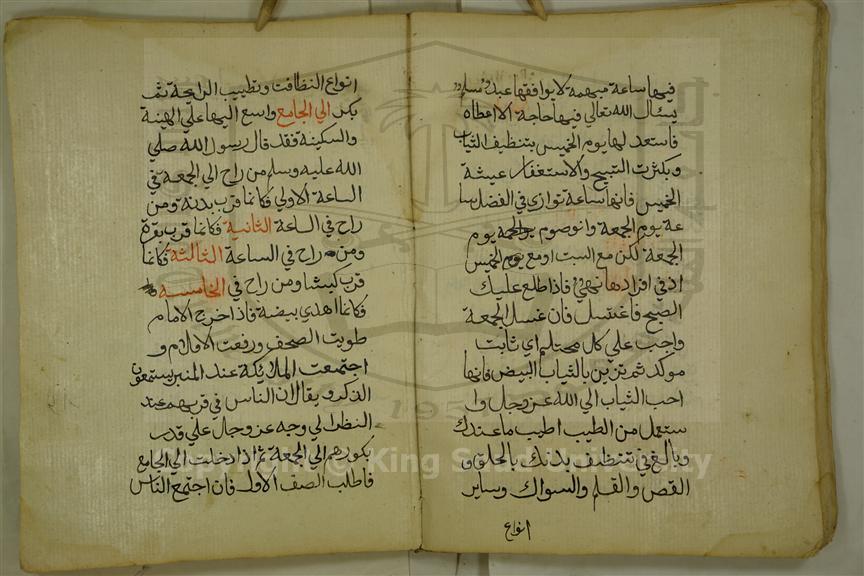 فيها ساعة مبهمة لا يوافقها عبد مسلم
يسئال الله تعالي فيها حاجة الا عطاه
فاستعد لها يوم الخميس بتنظيف الثياب
وبكثرت التسبيح والاستغفار عيشة
الخميس فانها ساعة توازي في الفضل سا
عة يوم الجمعة وانوصوم يوم
الجمعة لكن مع السبت اومع يوم الخميس
اذ في افرادها نهي فاذا طلع عليك
الصبح فاغتسل فان غسل الجمعة
واجب علي كل محتلم اي ثابت
موكد ثم تزين بالثياب البيض فانها
احب الثياب الي الله عز وجل وا
ستعمل من الطيب اطيب ما عندك
وبالغ في تنظيف بدنك بالحلق و
القص والقلم والسواك وساير
انواع
انواع النظافت وتطييب الرايحة ثم
بكر الي الجامع واسع اليها علي الهينة
والسكينة فقد قال رسول الله صلي
الله عليه وسلم من راح الي الجمعة في
الساعة الاولي فكانما قرب بدنة ومن
راح في الساعة الثانية فكانما قرب بقرة
ومن راح في الساعة الثالثة فكانما
قرب كبشا ومن راح في الخامسة
فكانما اهدي بيضة فاذا خرج الامام
طويت الصحف ورفعت الاقلام و
اجتمعت الملايكة عند المنبر يستمعون
الذكر ويقال ان الناس في قربهم عند
النظر الي وجه عز وجل علي قدر
بكورهم الي الجمعة ثم اذا دخلت الي الجامع
فاطلب الصف الاول فان اجتمع الناس
Copyright © King Saud University
195